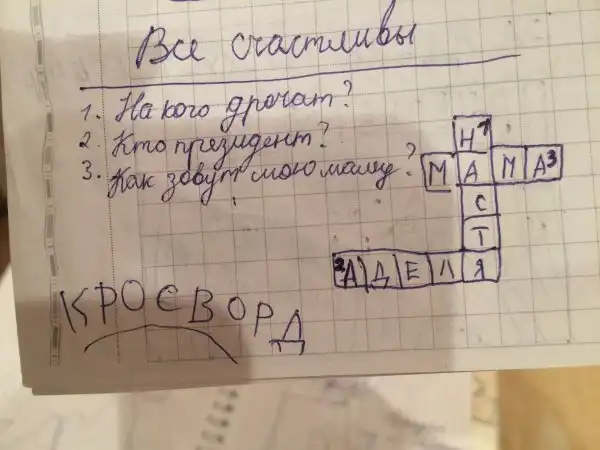 Все счастливы
1. На кого дрочат?
2. Кто президент?
3. Как зовут мою маму?
Н1
МАМА3
С
Т
2АДЕЛЯ
КРОСВОРД